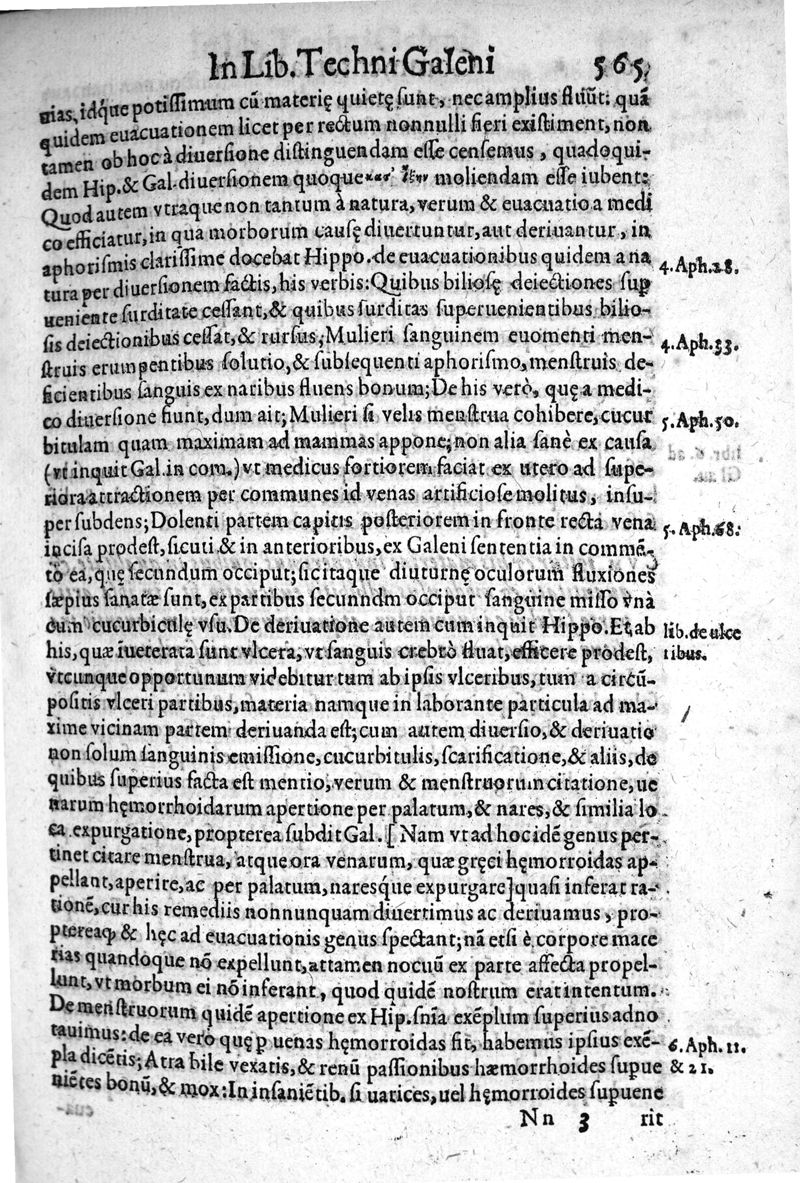 In Lib. Techni Galeni 565
nias, idq́ue potissimum cũ materię quietę sunt, nec amplius fluũt: quã
quidem euacuationem licet per rectum nonnulli fieri existiment, non
tamen ob hoc à diuersione distinguendam esse censemus, quadoqui-
dem Hip. & Gal. diuersionem quoque moliendam esse iubent:
Quod autem vtraque non tantum à natura, verum & euacuatio a medi
co efficiatur, in qua morborum causę diuertuntur, aut deriuantur, in
aphorismis clarissime docebat Hippo. de euacuationibus quidem a na
tura per diuersionem factis, his verbis: Quibus biliosę deiectiones sup
ueniente surditate cessant, & quibus surditas superuenientibus bilio-
sis deiectionibus cessat, & rursus; Mulieri sanguinem euomenti men-
struis erumpentibus solutio, & subsequenti aphorismo, menstruis de-
ficientibus sanguis ex naribus fluens bonum; De his verò, quę a medi-
co diuersione fiunt, dum ait; Mulieri si velis menstrua cohibere, cucur
bitulam quam maximam ad mammas appone; non alia sanè ex causa
(vt inquit Gal. in com.) vt medicus fortiorem faciat ex utero ad supe-
riora attractionem per communes id venas artificiose molitus, insu-
per subdens; Dolenti partem capitis posteriorem in fronte recta vena
incisa prodest, sicuti & in anterioribus, ex Galeni sententia in commẽ-
to ea, quę secundum occiput; sicitaque diuturnę oculorum fluxiones
sæpius sanatæ sunt, ex partibus secunndm occiput sanguine misso vnà
cum cucurbiculę vsu. De deriuatione autem cum inquit Hippo. Et ab
his, quæ iueterata sunt vlcera, vt sanguis crebrò fluat, efficere prodest,
vtcunque opportunum videbitur tum ab ipsis vlceribus, tum a circũ-
positis vlceri partibus, materia namque in laborante particula ad ma-
xime vicinam partem deriuanda est; cum autem diuersio, & deriuatio
non solum sanguinis emissione, cucurbitulis, scarificatione, & aliis, de
quibus superius facta est mentio, verum & menstruorum citatione, ue
narum hęmorrhoidarum apertione per palatum, & nares, & similia lo
ca expurgatione, propterea subdit Gal. [Nam vt ad hoc idẽ genus per-
tinet citare menstrua, atque ora venarum, quæ gręci hęmorroidas ap-
pellant, aperire, ac per palatum, naresq́ue expurgare] quasi inferat ra-
tionẽ, cur his remediis nonnunquam diuertimus ac deriuamus, pro-
ptereaq; & hęc ad euacuationis genus spectant; nã etsi è corpore mate
rias quandoque nõ expellunt, attamen nocuũ ex parte affecta propel-
lunt, vt morbum ei nõ inferant, quod quidẽ nostrum erat intentum.
De menstruorum quidẽ apertione ex Hip. snia exẽplum superius adno
tauimus: de ea vero quę p uenas hęmorroidas fit, habemus ipsius exẽ-
pla dicẽtis; Atra bile vexatis, & renũ passionibus hæmorrhoides supue
niẽtes bonũ, & mox: In insaniẽtib. si uatices, uel hęmorroides supuene
Nn 3 rit
4. Aph. 28.
4. Aph. 33.
5. Aph. 50.
5. Aph. 68.
lib. de ulce
ribus.
6. Aph. 11.
& 21.